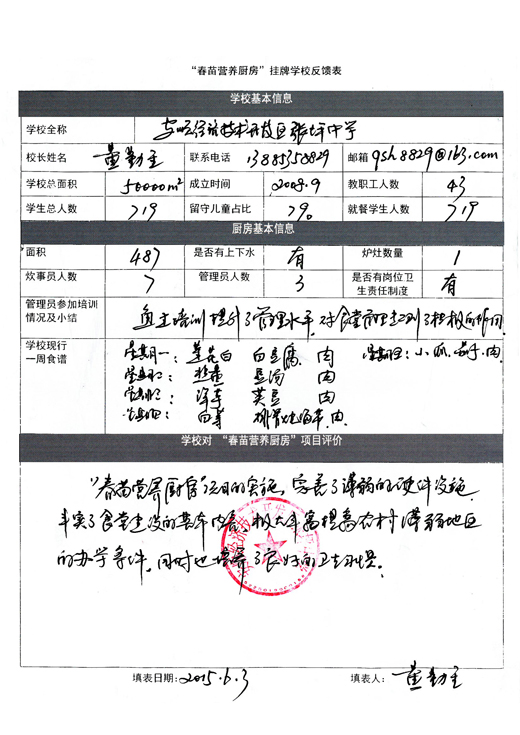 “春苗营养厨房”挂牌学校反馈表
学校基本信息
学校全称 经济技术开发区张坪中学
校长姓名 董勤主 联系电话 13885358829 邮箱 gsh.8829@163.com
学校总面积 50000m² 成立时间 2008.9 教职工人数 43
学生总人数 719 留守儿童占比 就餐学生人数 719
厨房基本信息
面积 487 是否有上下水 有 炉灶数量 1
炊事员人数 7 管理员人数 3 是否有岗位卫
生责任制度 有
管理员参加培训
情况及小结 培训提升了管理水平,对食堂管理起到了积极的作用
学校现行
一周食谱
星期一: 莲花白 白豆腐 肉 小瓜 茄子 肉
豆汤 肉
肉
肉
学校对 “春苗营养厨房”项目评价
“春苗营养厨房”项目的实施,完善了薄弱的硬件设施
丰实了食堂建设的基本内容,极大丰富提高农村薄弱地区
的办学条件,同时也培养了良好的卫生习惯。
填表日期: 2015.6.3 填表人: 董勤主